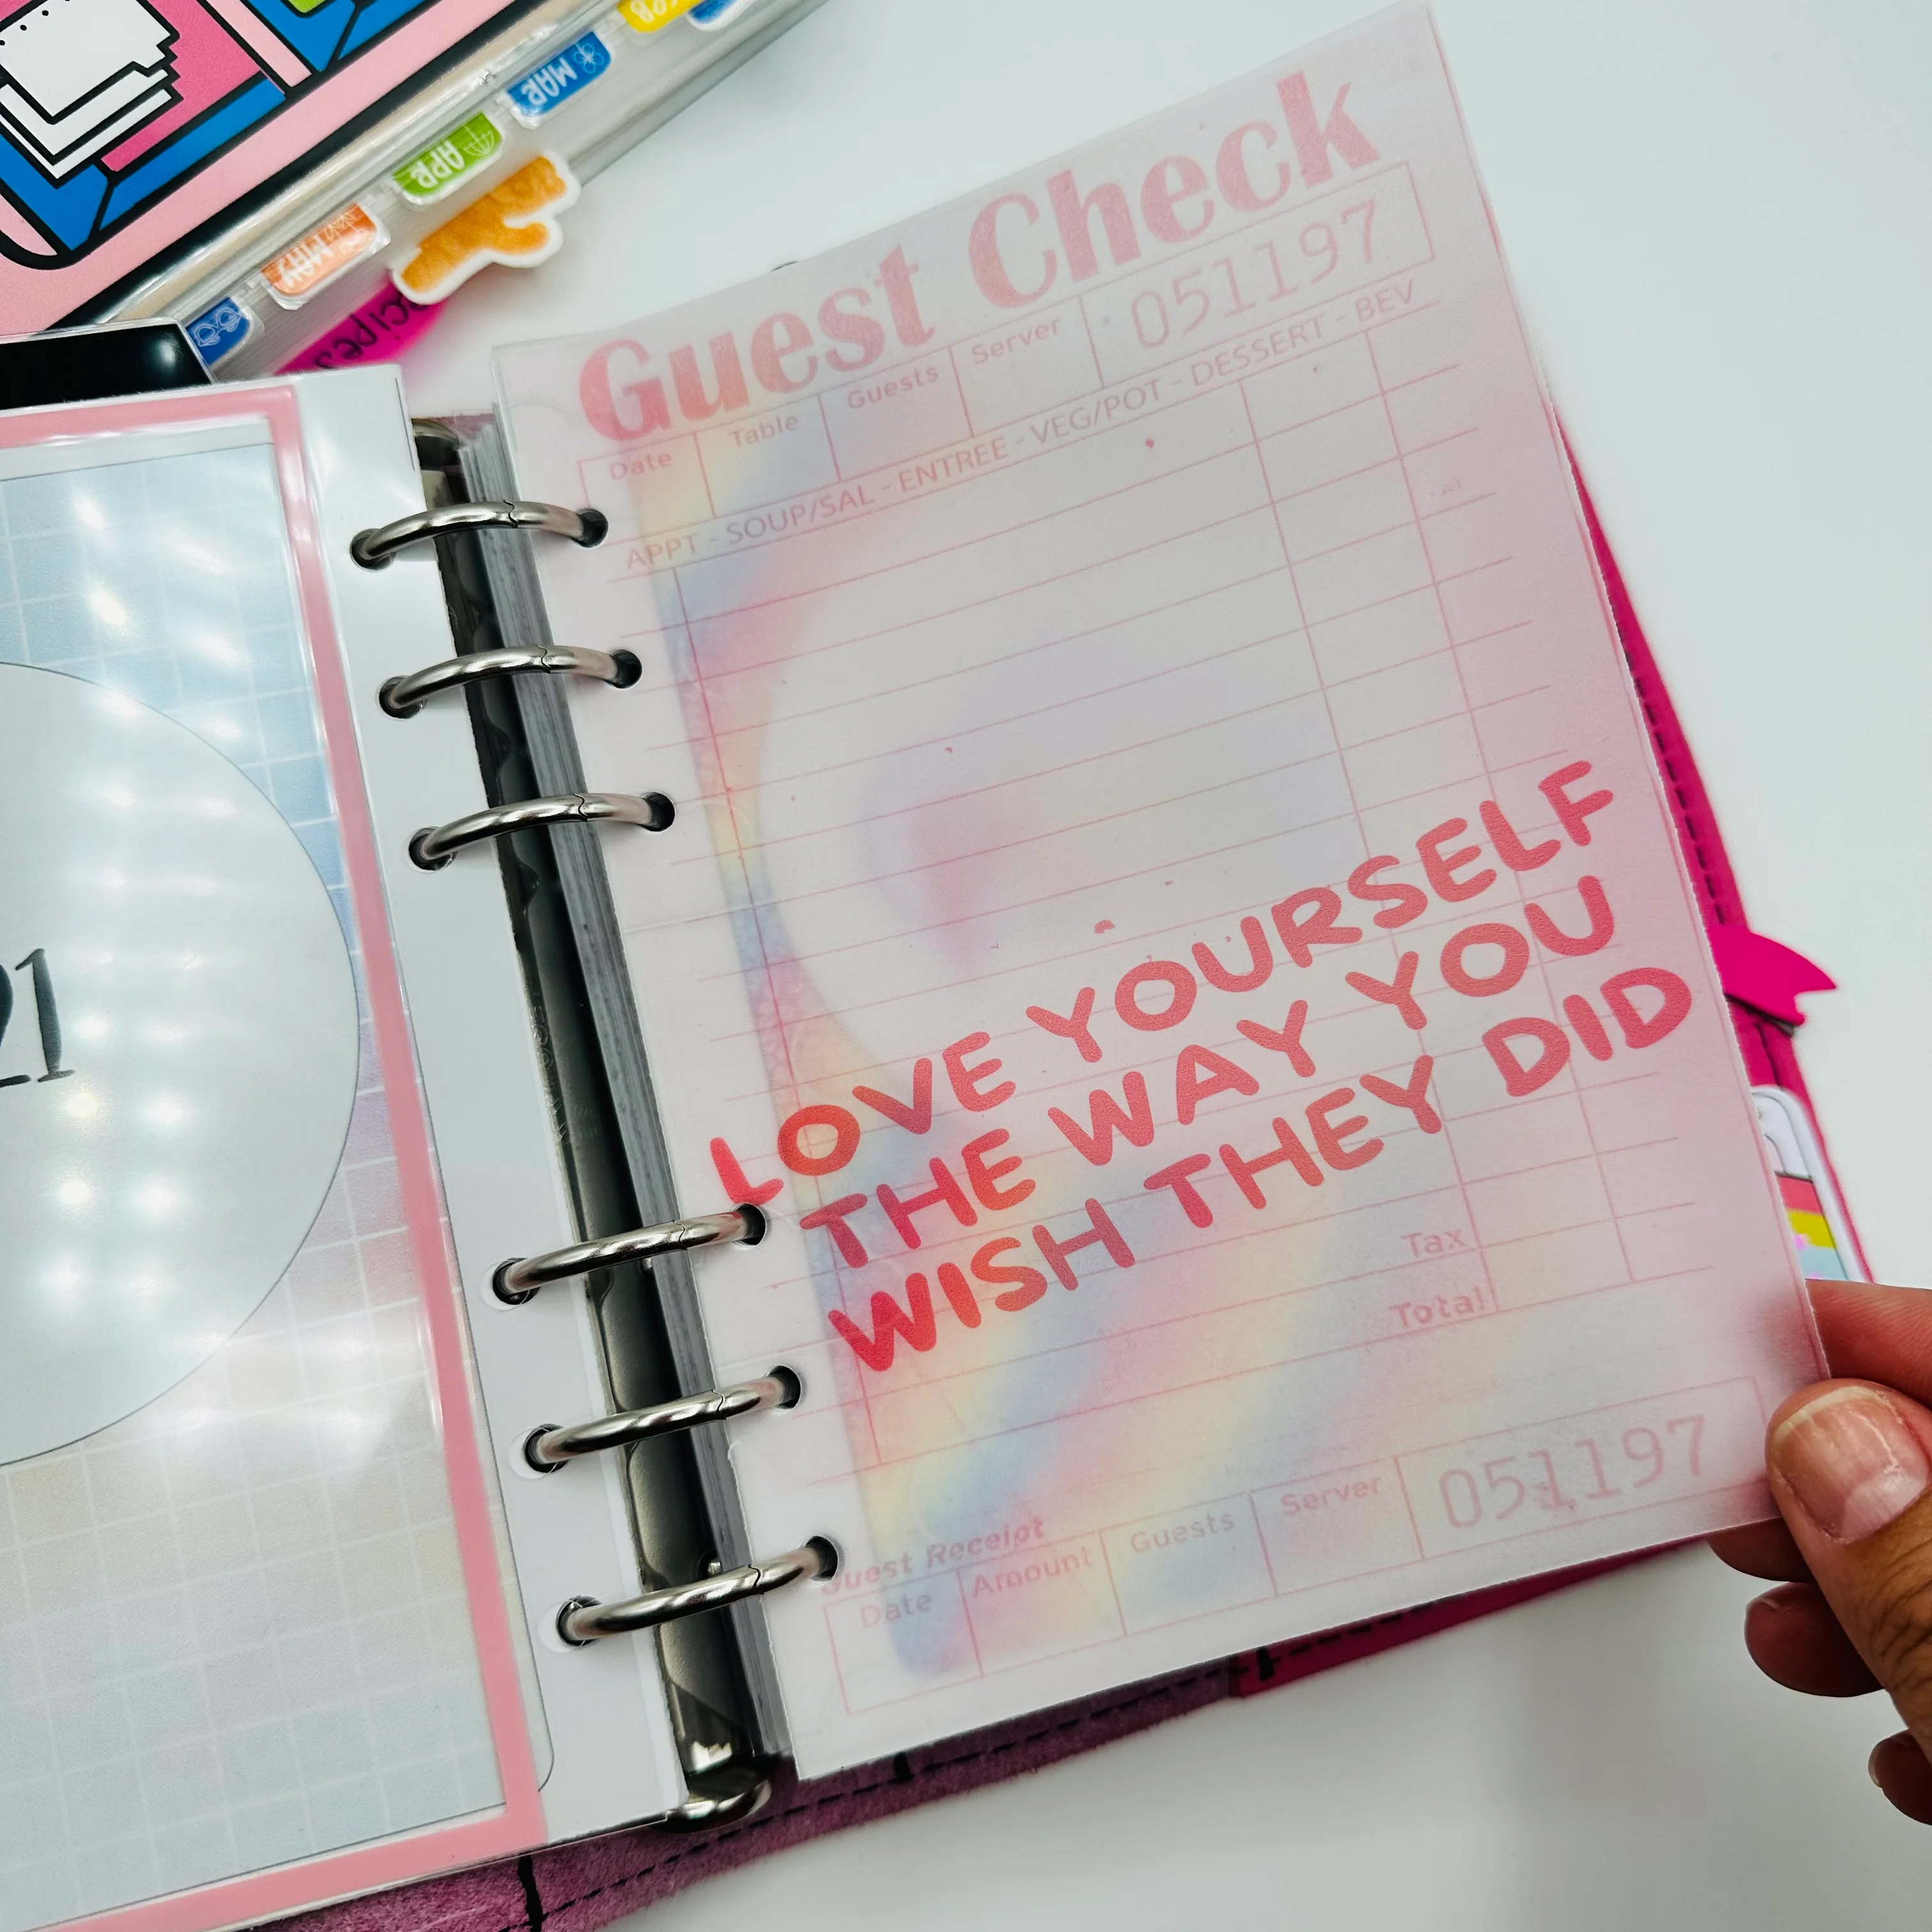 MAR
APR
MAY
Guest Check
Date Table Guests Server 051197
APPT - SOUP/SAL - ENTREE - VEG/POT - DESSERT - BEV
21
LOVE YOURSELF
THE WAY YOU
WISH THEY DID
Tax
Total
Guest Receipt
Date Amount Guests Server 051197